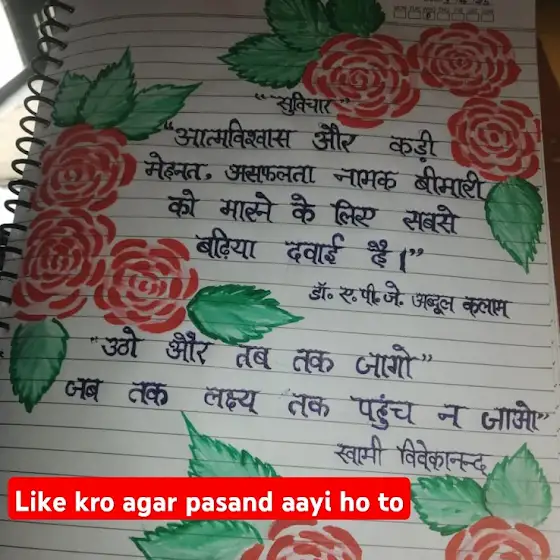 "सुविचार"
"आत्मविश्वास और कड़ी
मेहनत, असफलता नामक बीमारी
को मारने के लिए सबसे
बढ़िया दवाई है।"
डॉ. ए. पी. जे. अब्दुल कलाम
"उठो और तब तक जागो"
जब तक लक्ष्य तक पहुंच न जाओ"
स्वामी विवेकानन्द
Like kro agar pasand aayi ho to